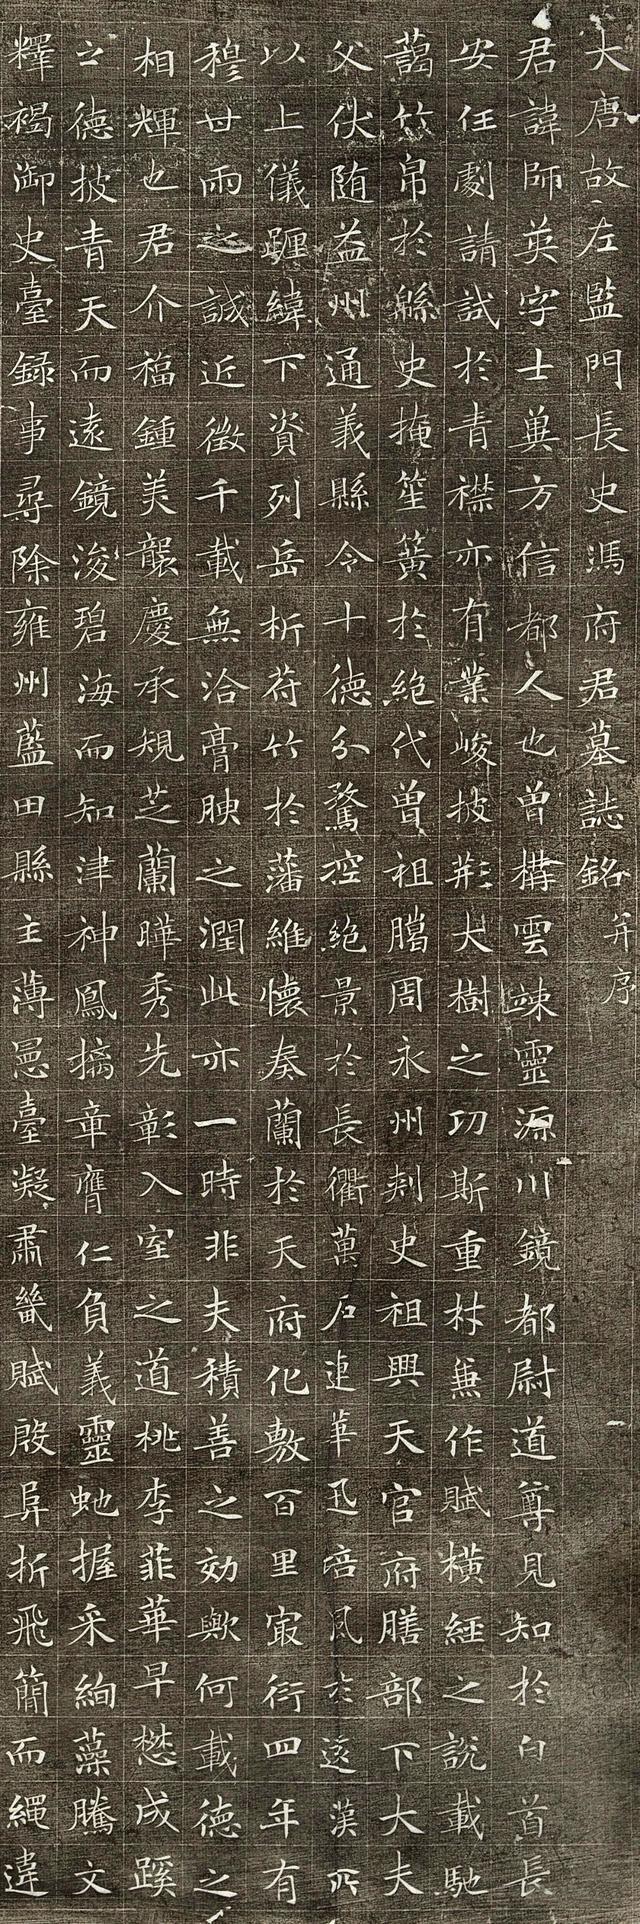 大唐故左監門長史馮府君墓誌銘并序
君諱師英字士巽方信都人也曾構雲竦靈源川鏡都尉道尊見知於白首長
安任劇請試於青襟亦有業峻披荊大樹之功斯重材兼作賦橫經之說載馳
藹竹帛於緜史掩笙簧於絶代曾祖騰周永州刾史祖興天官府膳部下大夫
父伏随益州通義縣令十德分騖控絶景於長衢萬石連華迅培風於遥漢所
以上儀躔緯下資列岳析苻竹於藩維懷奏蘭於天府化敷百里㝡衍四年有
穆毋雨之誠近徵千載無洽膏腴之潤此亦一時非夫積善之効歟何載德之
相輝也君介福鍾美襲慶承規芝蘭曄秀先彰入室之道桃李菲華早懋成蹊
之德披青天而遠鏡浚碧海而知津神鳳摛章膺仁負義靈虵握采絢藻騰文
釋褐御史臺録事尋除雍州藍田縣主薄
臺凝肅畿賦殷阜折飛蕳而繩違